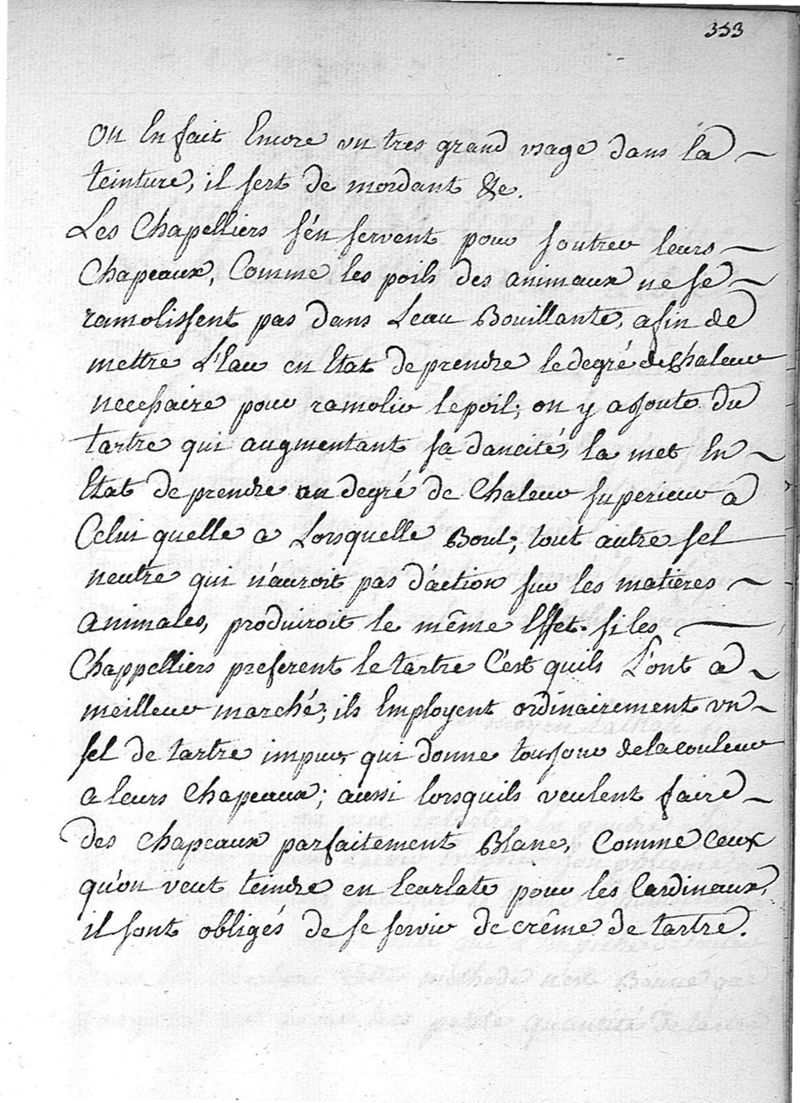 353
on En fait Encore un tres grand usage dans la
teinture, il sert de mordant &c.
Les Chapelliers s'én servent pour foutrer leurs
Chapeaux, Comme les poils des animaux ne se
ramolissent pas dans Leau Bouillante, afin de
mettre L'Eau en Etat de prendre le degré de Chaleur
necessaire pour ramolir le poil; on y ajoute du
tartre qui augmentant sa dancité, la met En
Etat de prendre un degré de Chaleur superieur a
Celui quelle a Lorsquelle Bout; tout autre sel
neutre qui n'auroit pas d'action sur les matieres
animales, produiroit le même Effet. si les
Chappelliers preferent le tartre C'est quils L'ont a
meilleur marché; ils Employent ordinairement un
sel de tartre impur qui donne tousjour de la couleur
a leurs Chapeaux; aussi lorsquils veulent faire
des chapeaux parfaitement Blanc, Comme Ceux
qu'on veut teindre en Ecarlate pour les Cardineaux,
il sont obligés de se servir de crême de tartre.